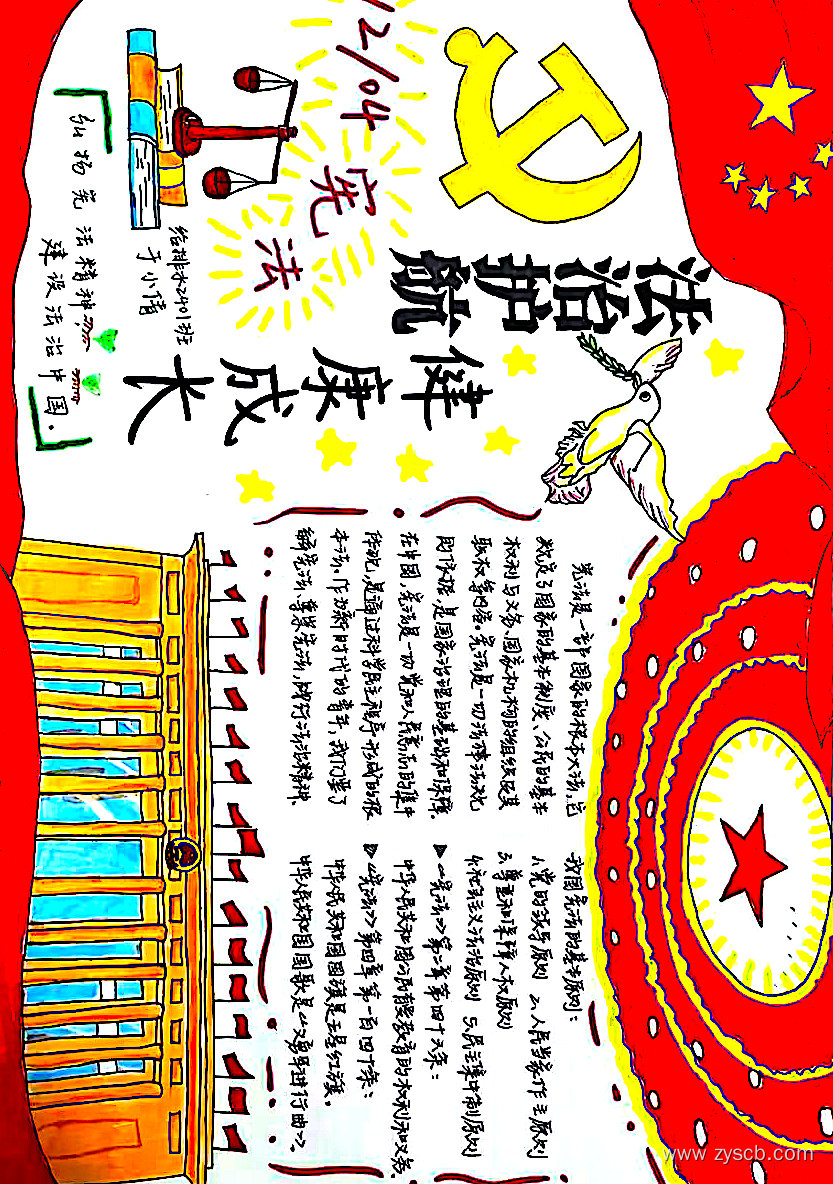 12/04
宪
法
法治护航
健康成长
给排水2401班
于小倩
弘扬宪法精神
建设法治中国.
宪法是一个国家的根本大法,它
规定了国家的基本制度、公民的基本
权利与义务、国家机构的组织及其
职权等内容。宪法是一切法律法规
的依据,是国家治理的基础和保障。
在中国,宪法是一切党和人民意志的集中
体现,是通过科学民主程序形成的根
本法。作为新时代的青年,我们要了
解宪法,尊崇宪法,践行法治精神。
我国宪法的基本原则:
1.党的领导原则 2.人民当家作主原则
3.尊重和保障人权原则
4.社会主义法治原则 5.民主集中制原则
▶《宪法》第二章第四十六条:
中华人民共和国公民有受教育的权利和义务。
▶《宪法》第四章第一百四十条:
中华人民共和国国旗是五星红旗。
中华人民共和国国歌是《义勇军进行曲》。
www.zyscb.com